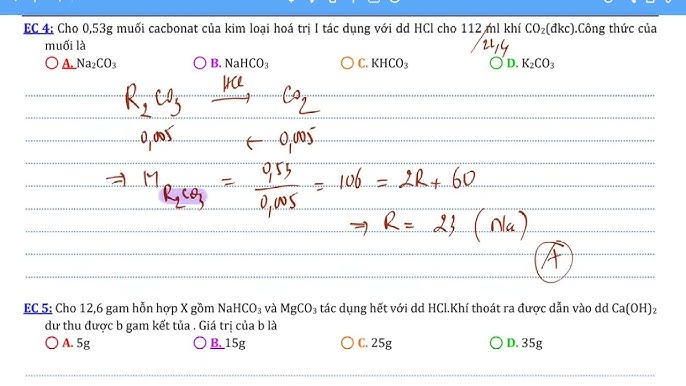 EC 4: Cho 0,53g muối cacbonat của kim loại hoá trị I tác dụng với dd HCl cho 112 ml khí CO₂(đkc).Công thức của
muối là
/22,4
A. Na₂CO₃ B. NaHCO₃ C. KHCO₃ D. K₂CO₃
R₂CO₃ HCl → CO₂
0,005 ← 0,005
⇒ M R₂CO₃ = 0,53/0,005 = 106 = 2R + 60
⇒ R = 23 (Na)
A
EC 5: Cho 12,6 gam hỗn hợp X gồm NaHCO₃ và MgCO₃ tác dụng hết với dd HCl.Khí thoát ra được dẫn vào dd Ca(OH)₂
dư thu được b gam kết tủa . Giá trị của b là
A. 5g B. 15g C. 25g D. 35g